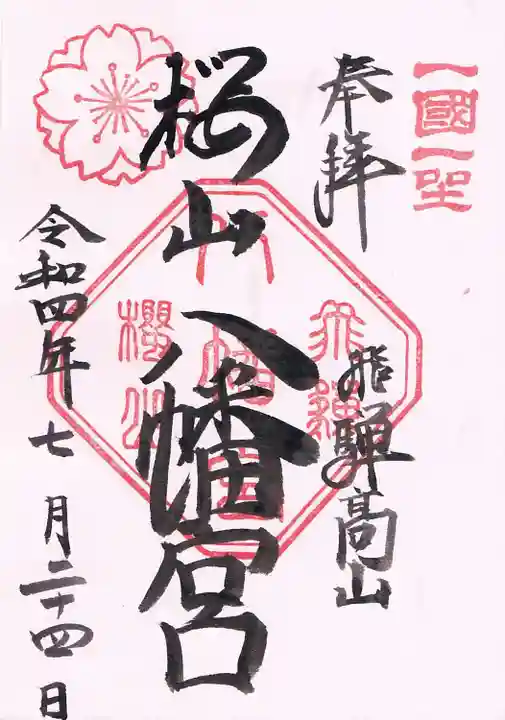 一國一社
奉拝
飛騨高山
桜山八幡宮
八幡宮
飛騨
櫻山
令和四年七月二十四日